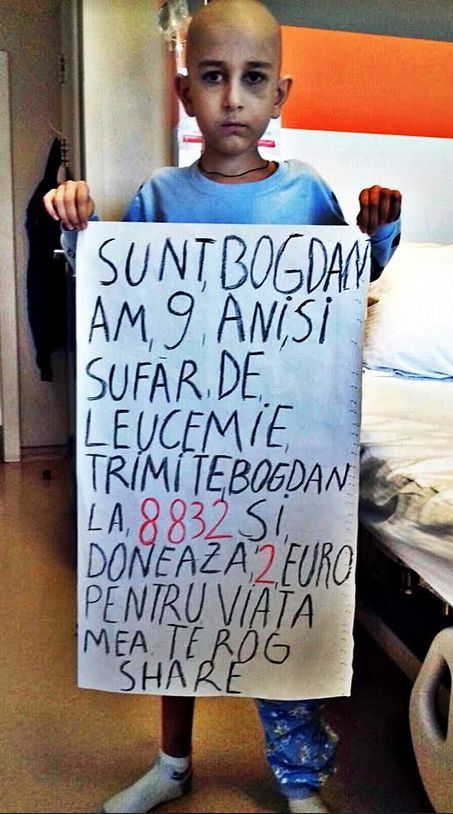 SUNT, BOGDAN
AM, 9, ANI, SI
SUFĂR, DE,
LEUCEMIE,
TRIMITE, BOGDAN
LA, 8832 SI,
DONEAZĂ, 2, EURO
PENTRU VIATA
MEA TE ROG
SHARE